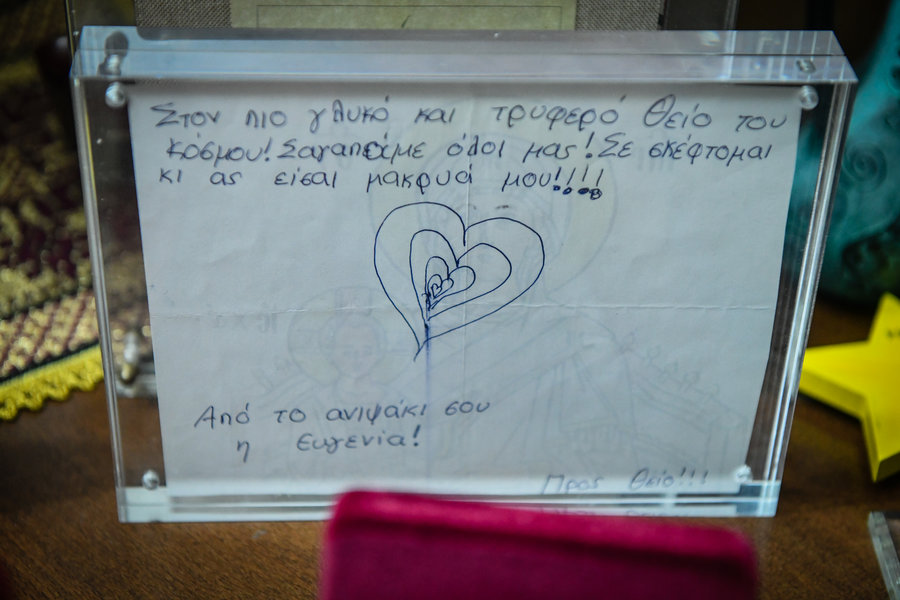 Στον πιο γλυκό και τρυφερό θείο του
κόσμου! Σαγαπάμε όλοι μας! Σε σκέφτομαι
κι ας είσαι μακρυά μου!!!!
Από το ανιψάκι σου
η Ευγενία!
Προς Θείο!!!